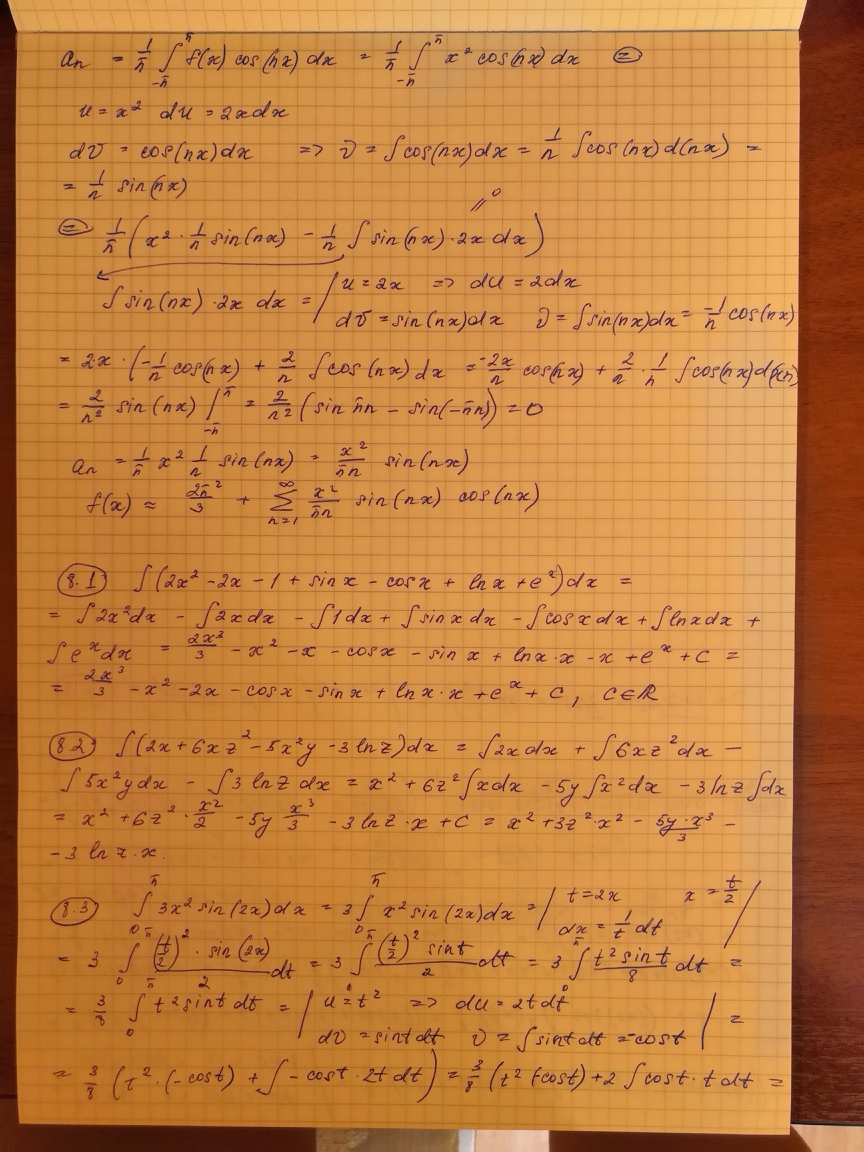 aₙ = 1/π ∫_{-π}^{π} f(x) cos(nx) dx = 1/π ∫_{-π}^{π} x² cos(nx) dx ⊜
u = x² du = 2xdx
dv = cos(nx)dx => v = ∫cos(nx)dx = 1/n ∫cos(nx)d(nx) =
= 1/n sin(nx)
⊜ 1/π (x² · 1/n sin(nx) - 1/n ∫ sin(nx)·2x dx) = 0
∫ sin(nx)·2x dx = | u = 2x => du = 2dx
dv = sin(nx)dx v = ∫sin(nx)dx = -1/n cos(nx)
= 2x · (-1/n cos(nx) + 2/n ∫cos(nx)dx = -2x/n cos(nx) + 2/n · 1/n ∫cos(nx)d(xn)
= 2/n² sin(nx) |_{-π}^{π} = 2/n² (sin πn - sin(-πn)) = 0
aₙ = 1/π x² 1/n sin(nx) = x²/πn sin(nx)
f(x) ≈ 2π²/3 + ∑_{n=1}^{∞} x²/πn sin(nx) cos(nx)
8.1 ∫(2x² - 2x - 1 + sinx - cosx + lnx + eˣ)dx =
= ∫2x²dx - ∫2xdx - ∫1dx + ∫sinxdx - ∫cosxdx + ∫lnxdx +
∫eˣdx = 2x³/3 - x² - x - cosx - sinx + lnx·x - x + eˣ + C =
= 2x³/3 - x² - 2x - cosx - sinx + lnx·x + eˣ + C, C∈ℝ
8.2 ∫(2x + 6xz² - 5x²y - 3lnz)dx = ∫2xdx + ∫6xz²dx -
∫5x²ydx - ∫3lnz dx = x² + 6z²∫xdx - 5y∫x²dx - 3lnz∫dx
= x² + 6z² · x²/2 - 5y x³/3 - 3lnz·x + C = x² + 3z²·x² - 5y·x³/3 -
- 3lnz·x.
8.3 ∫_0^π 3x²sin(2x)dx = 3∫_0^π x²sin(2x)dx = | t = 2x x = t/2 |
dx = 1/t dt
= 3 ∫_0^π (t/2)²·sin(2x)/2 dt = 3 ∫_0^π (t/2)² sint/2 dt = 3 ∫_0^π t² sint/8 dt =
= 3/8 ∫_0^π t² sint dt = | u = t² => du = 2tdt
dv = sintdt v = ∫sintdt = -cost | =
= 3/8 (t²·(-cost) + ∫-cost·2tdt) = 3/8 (t²(-cost) + 2∫cost·tdt =